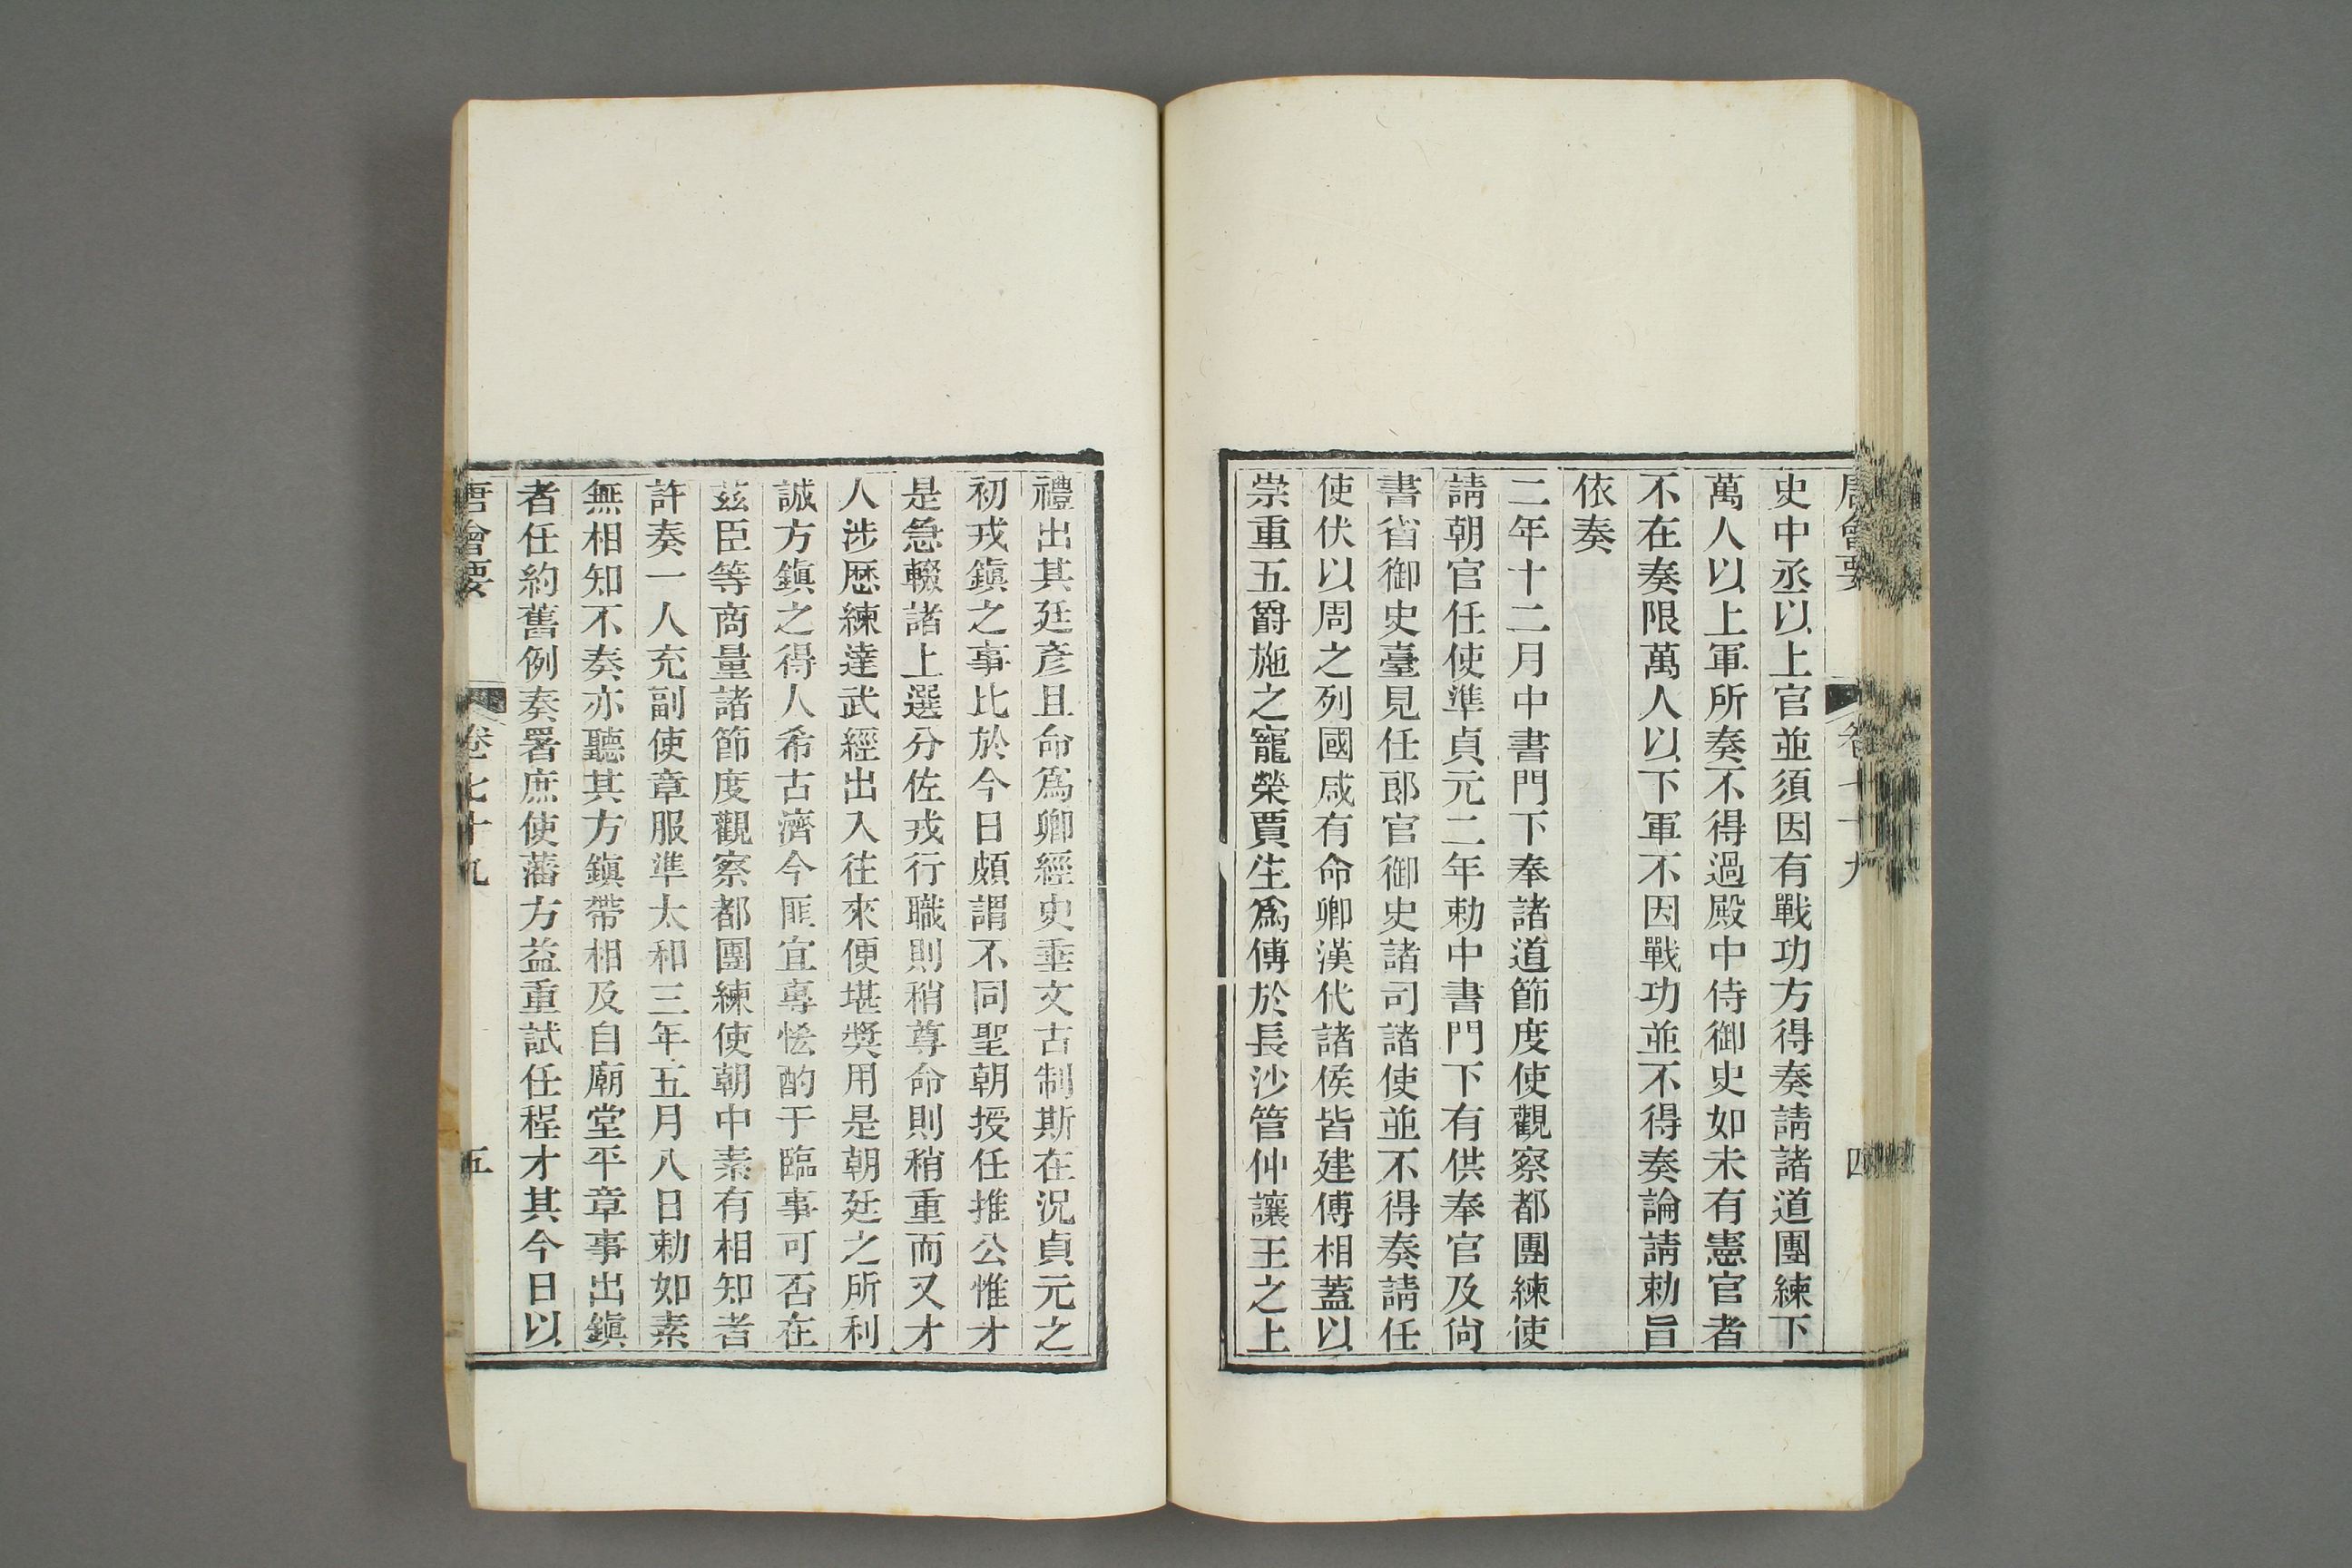 唐會要 卷七十九 四
史中丞以上官並須因有戰功方得奏請諸道團練下
萬人以上軍所奏不得過殿中侍御史如未有憲官者
不在奏限萬人以下軍不因戰功並不得奏論請勅旨
依奏
二年十二月中書門下奉諸道節度使觀察都團練使
請朝官任使準貞元二年勅中書門下有供奉官及尙
書省御史臺見任郎官御史諸司諸使並不得奏請任
使伏以周之列國咸有命卿漢代諸侯皆建傅相蓋以
崇重五爵施之寵榮賈生爲傅於長沙管仲讓王之上
禮出其廷彥且命爲卿經史垂文古制斯在況貞元之
初戎鎭之事比於今日頗謂不同聖朝授任推公惟才
是急輟諸上選分佐戎行職則稍尊命則稍重而又才
人涉歷練達武經出入往來便堪獎用是朝廷之所利
誠方鎭之得人希古濟今匪宜專恡酌于臨事可否在
茲臣等商量諸節度觀察都團練使朝中素有相知者
許奏一人充副使章服準太和三年五月八日勅如素
無相知不奏亦聽其方鎭帶相及自廟堂平章事出鎭
者任約舊例奏署庶使藩方益重試任程才其今日以
唐會要 卷七十九 五